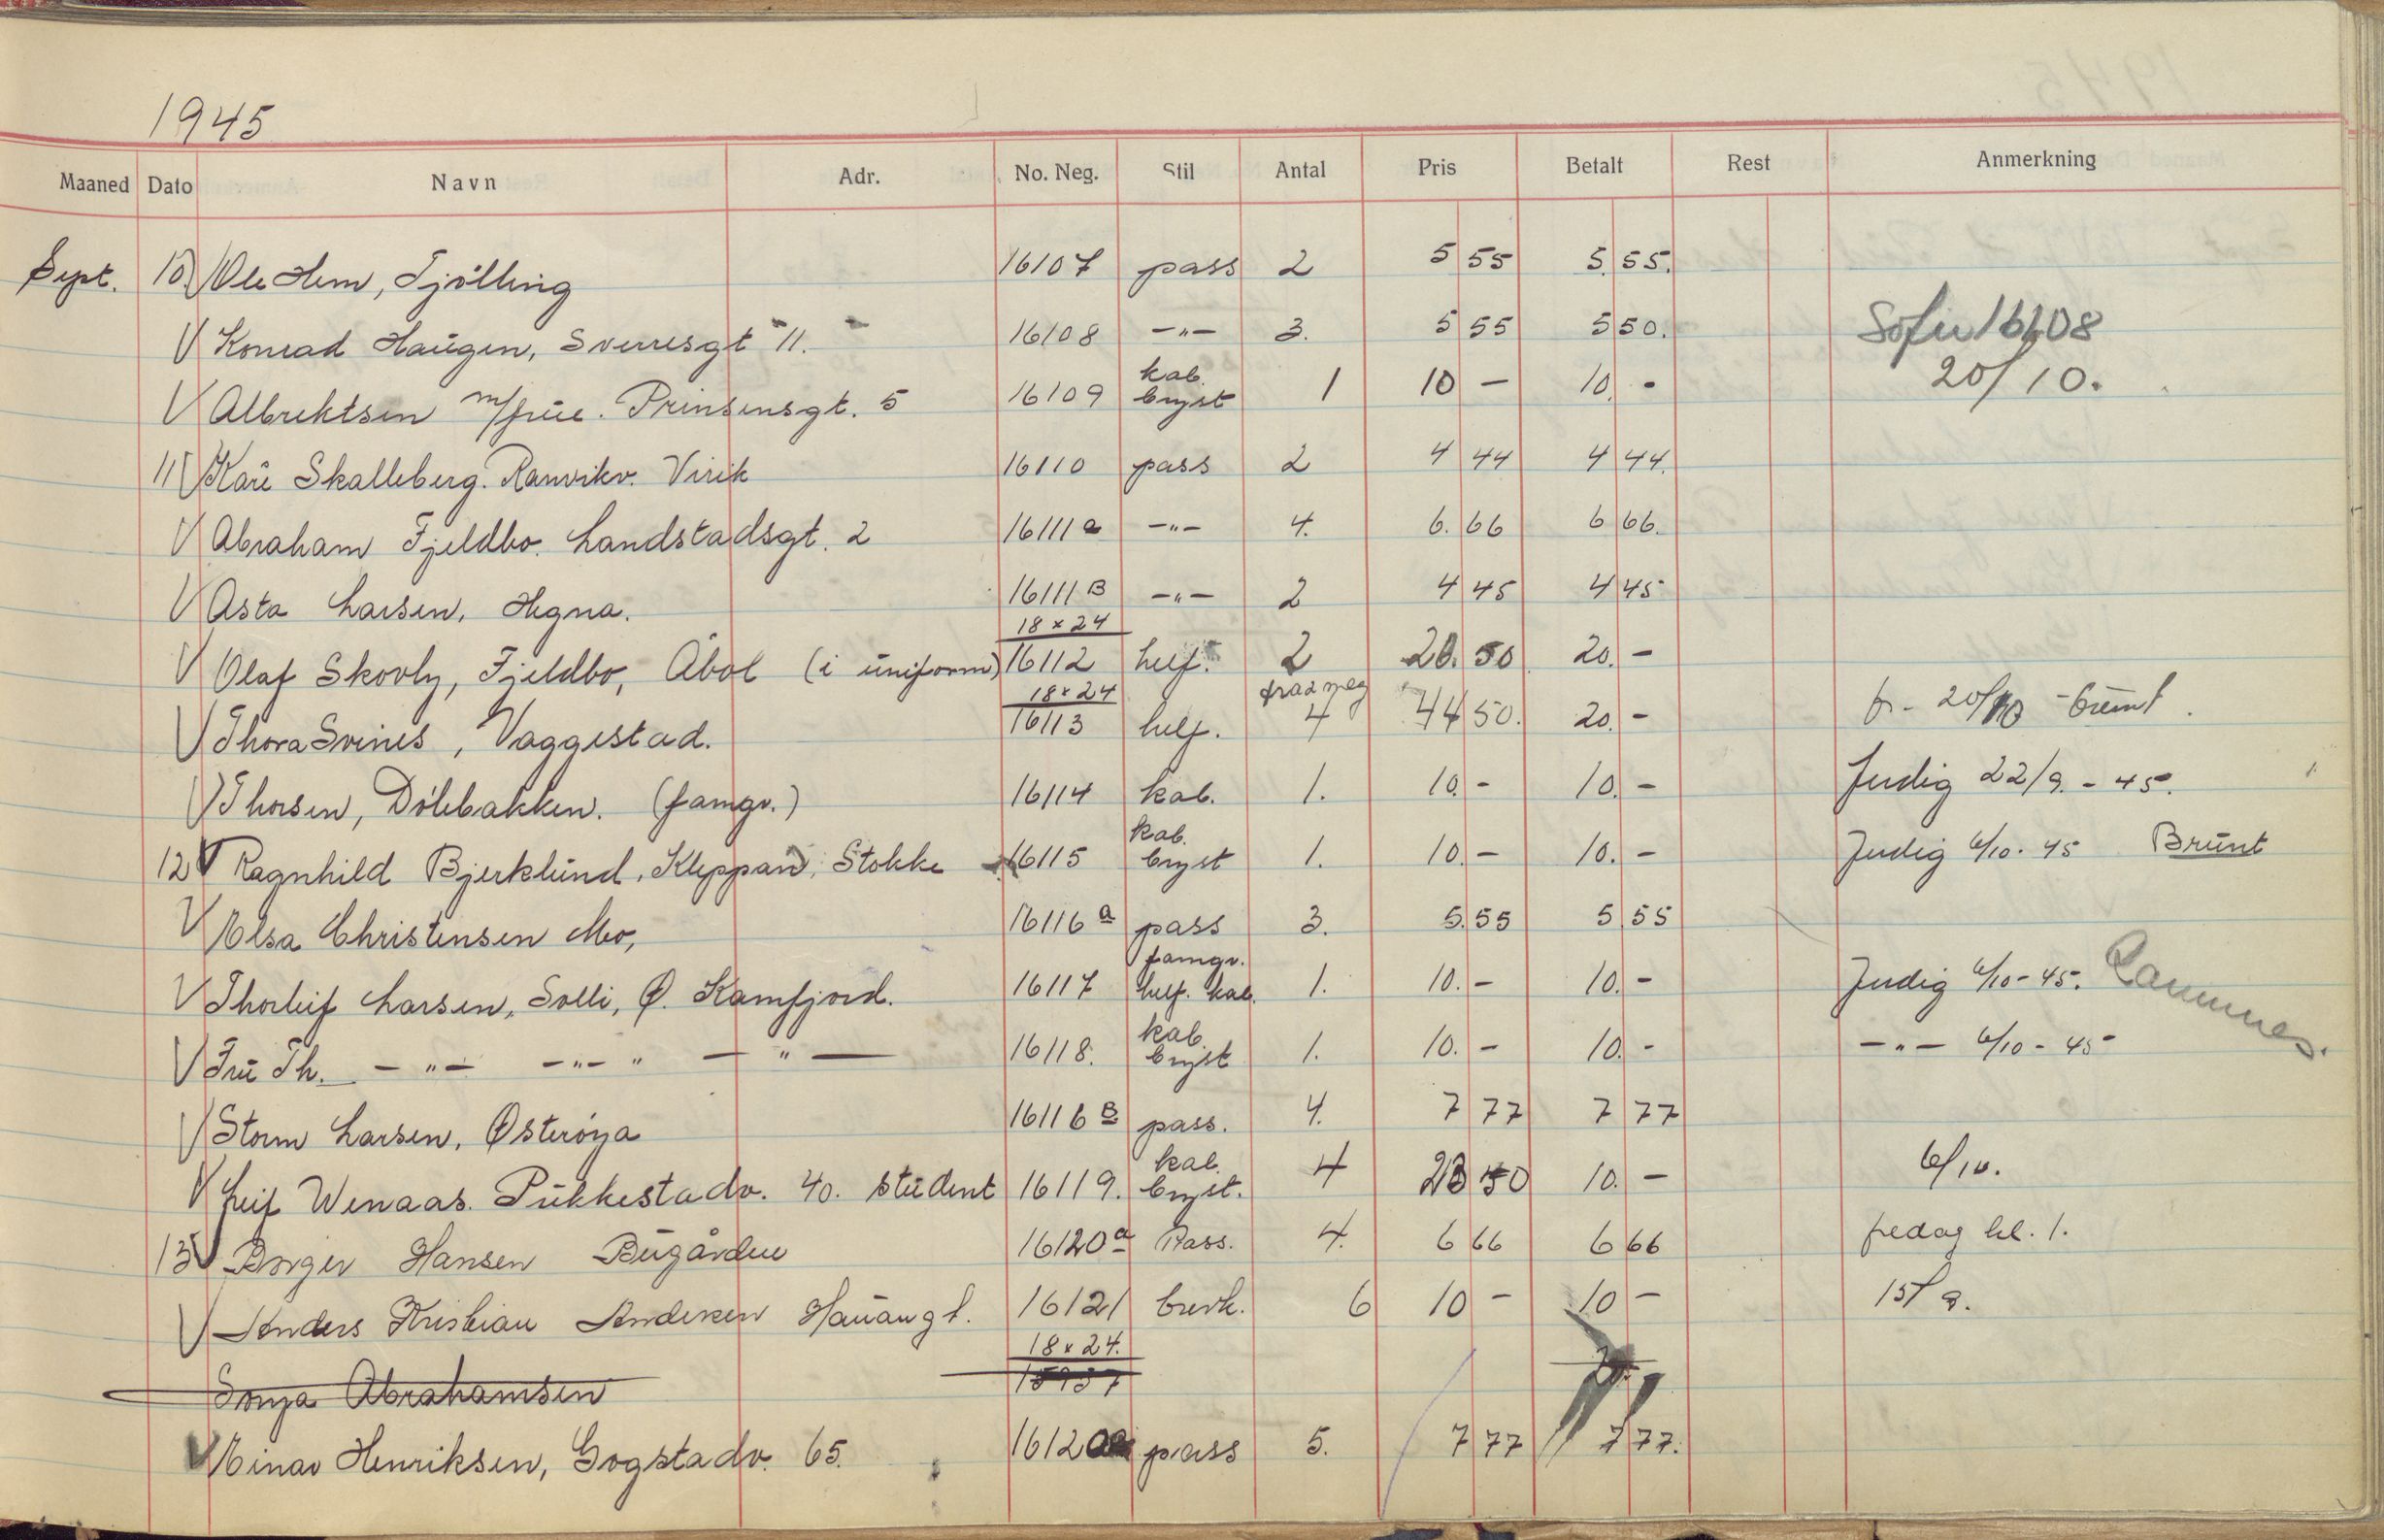 1945
Maaned Dato Navn Adr. No. Neg. Stil Antal Pris Betalt Rest Anmerkning
Sept. 10. V Ole Hem, Tjölling 16107 pass 2 5 55 5. 55.
V Konrad Haugen, Sverresgt 11. 16108 -"- 3. 5 55 5 50. 16108
V Albrektsen m/frue. Prinsensgt. 5 16109 kab. bryst 1 10 - 10. - 20/10.
11 V Kåre Skalleberg. Ranvikv. Virik 16110 pass 2 4 44 4 44.
V Abraham Fjeldbo. Landstadsgt. 2 16111 a -"- 4. 6. 66 6 66.
V Asta Larsen, Hegna. 16111 B -"- 2 4 45 4 45
18 x 24
V Olaf Skovly, Fjeldbo, Åbol (i uniform) 16112 helf. 2 20. 50 20. -
18 x 24
V Thora Svines, Vaggestad. 16113 helf. 4 44 50. 20. - 20/10
V Thorsen, Dölebakken. (famgr.) 16114 kab. 1. 10. - 10. - ferdig 22/9. - 45.
12 V Ragnhild Bjerklund, Kleppan, Stokke 16115 kab. bryst 1. 10. - 10. - ferdig 6/10. 45 Brunt
V Elsa Christensen Mo, 16116 a pass 3. 5. 55 5 55
V Thorleif Larsen, Solli, Ø. Kamfjord. 16117 famgr. helf. kab. 1. 10. - 10. - ferdig 6/10 - 45. Rammes.
V Fru Th. -"- -"- " - " - 16118. kab. bryst 1. 10. - 10. - -"- 6/10 - 45
V Storm Larsen, Østerøya 16116 B pass. 4. 7 77 7 77
V Leif Wenaas. Pukkestadv. 40. student 16119. kab. bryst. 4 10. - 6/10.
13 V Borger Hansen Bugården 16120 a Pass. 4. 6 66 6 66 fredag kl. 1.
V Anders Kristian Andersen Hauangt. 16121 brevk. 6 10 - 10 - 15/9.
18 x 24.
Sonja Abrahamsen 15937
V Einar Henriksen, Gogstadv. 65. 16120 pass 5. 7 77 7 77.